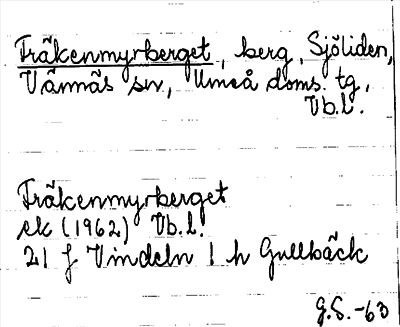 Fräkenmyrberget, berg, Sjöliden,
Vännäs sn, Umeå doms. tg,
Vb.l.
Fräkenmyrberget
ek (1962) Vb.l.
21 f Vindeln 1 h Gullbäck
G.S.-63